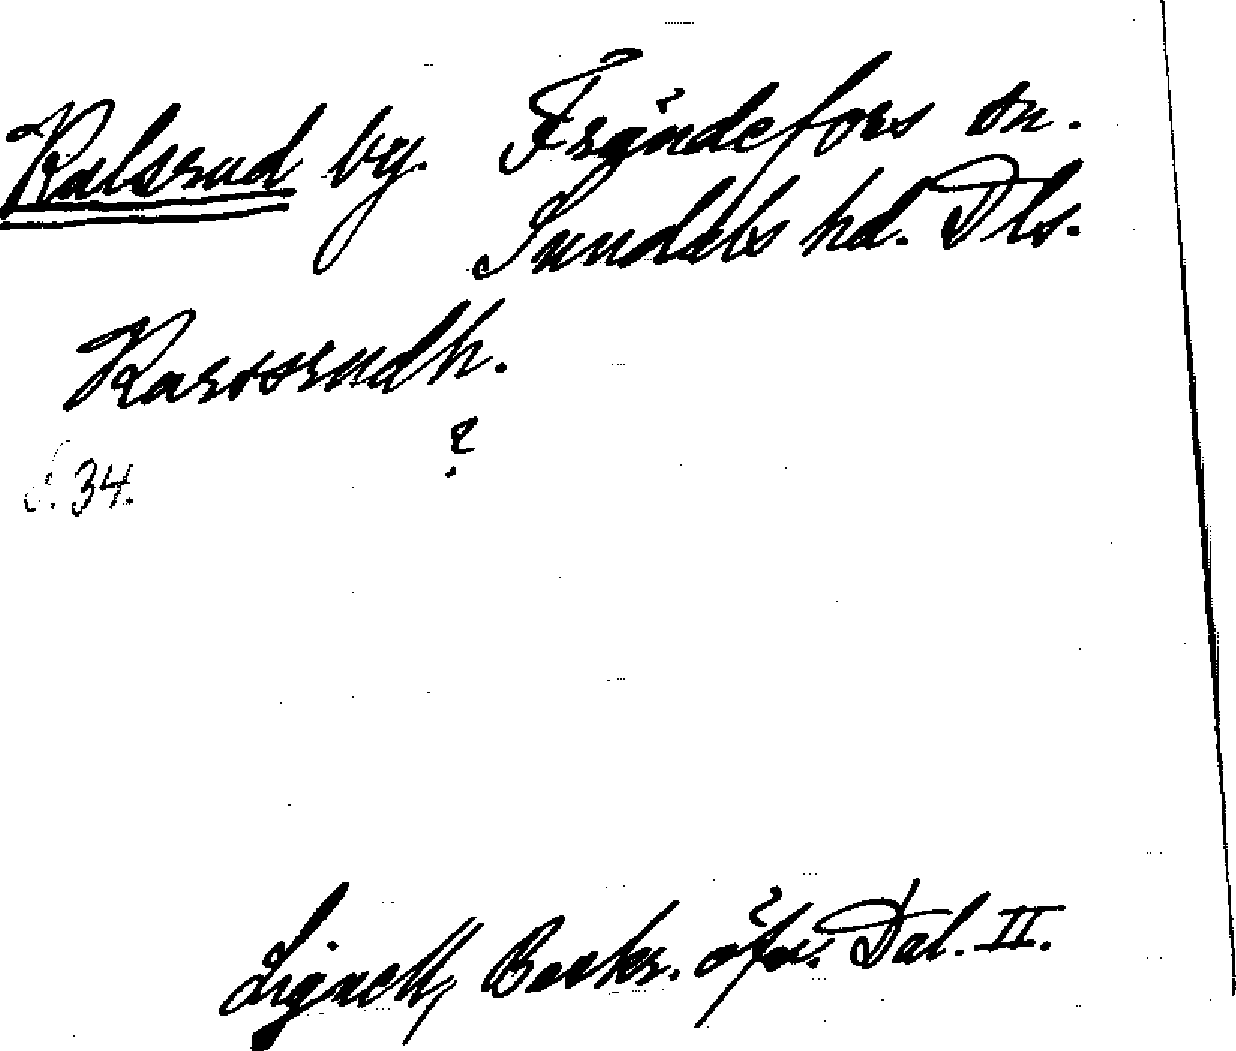 Kalsrud by. Frändefors sn.
Sundals hd. Dls.
Karossrudh.
?
s. 34.
Lignell, Beskr. öfv. Dal. II.